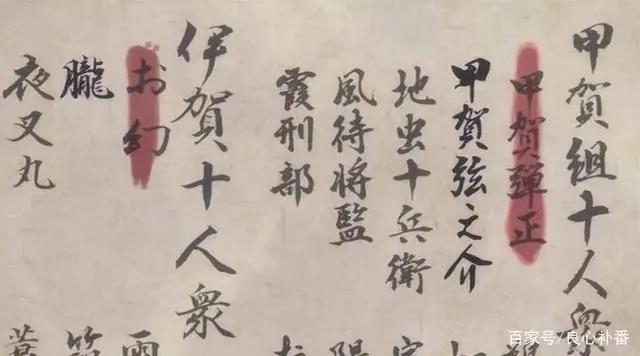 甲賀組十人衆
甲賀彈正
甲賀弦之介
地虫十兵衛
風待将監
霞刑部
伊賀十人衆
お幻
朧
夜叉丸
百家号/良心补番